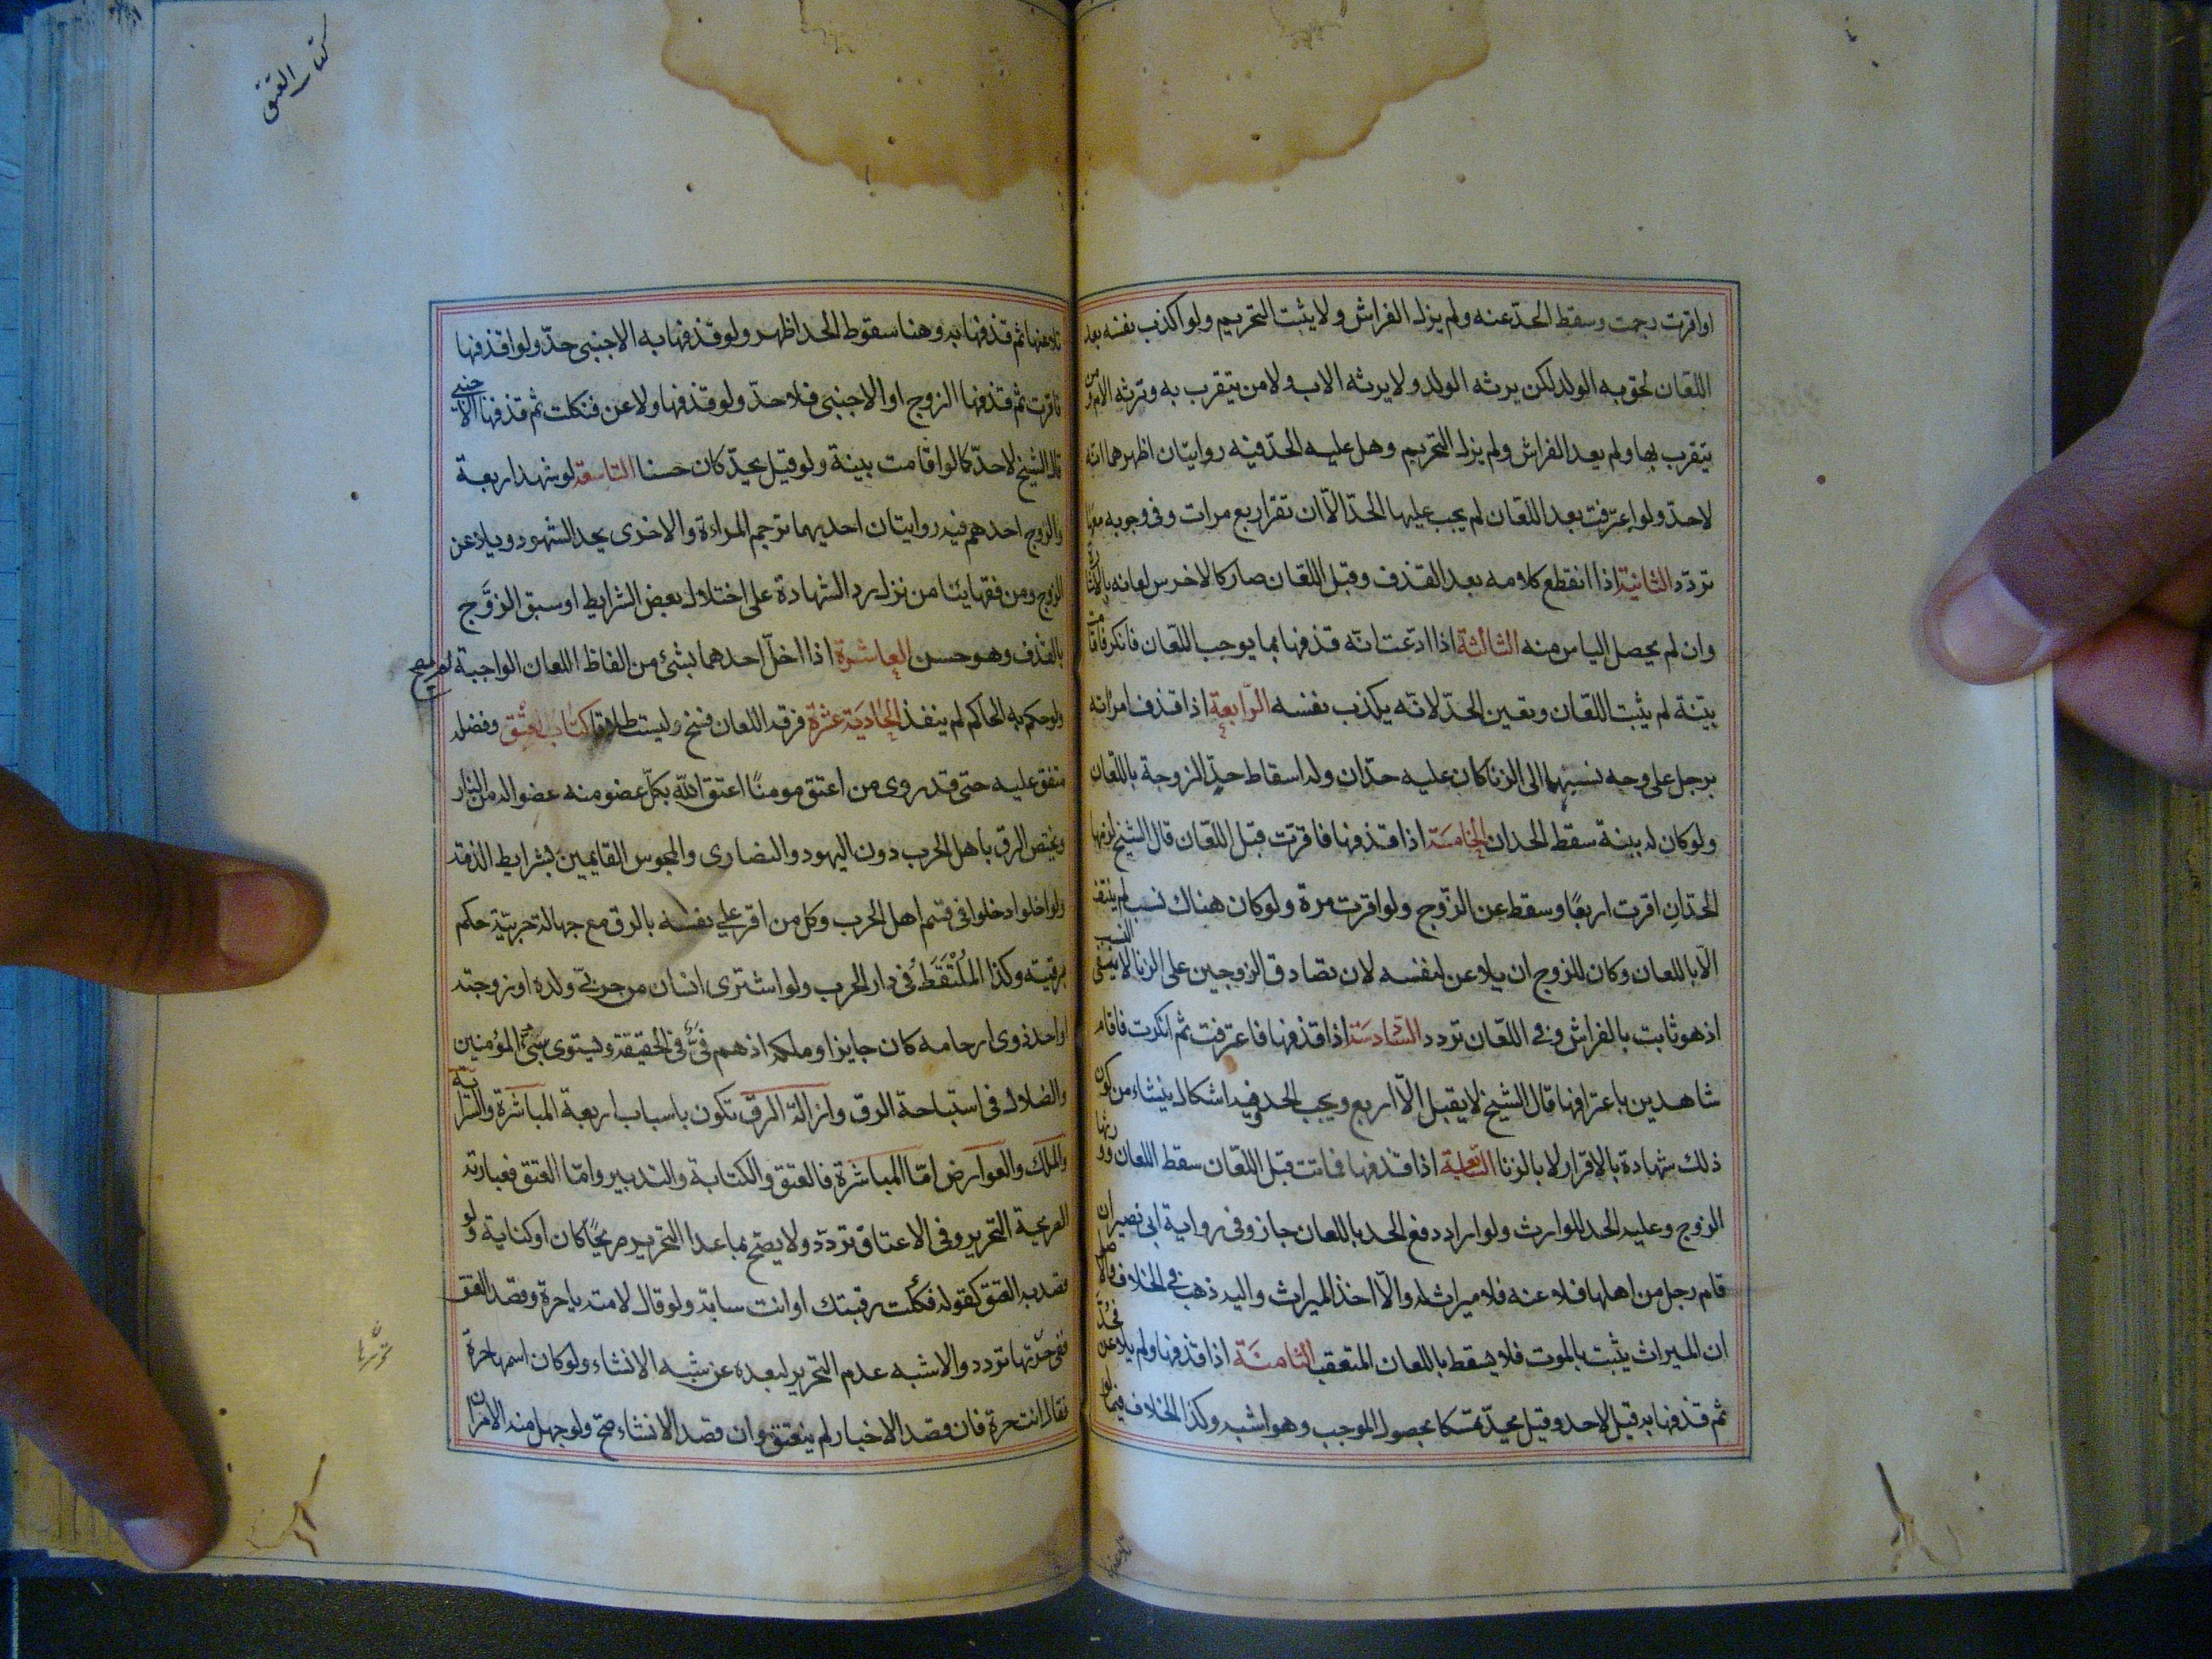 او اقرت رجمت وسقط الحدّ عنه ولم يزل الفراش ولا يثبت التحريم ولو اكذب نفسه بعد
اللعان لحق به الولد لكن يرثه الولد ولا يرثه الاب ولا من يتقرب به وترثه الام ومن
يتقرب بها ولم يعد الفراش ولم يزل التحريم وهل عليه الحدّ فيه روايتان اظهرهما انه
لا حدّ ولو اعترفت بعد اللعان لم يجب عليها الحدّ الّا ان تقر اربع مرات وفي وجوبه معها
تردّد الثانية اذا انقطع كلامه بعد القذف وقبل اللعان صار كالاخرس لعانه بالاشارة
وان لم يحصل الياس منه الثالثة اذا ادّعت انّه قذفها بما يوجب اللعان فانكر فاقامت
بيّنة لم يثبت اللعان وتعين الحدّ لانّه يكذب نفسه الرّابعة اذا قذف امراته
برجل على وجه نسبهما الى الزنا كان عليه حدّان وله اسقاط حدّ الزوجة باللعان
ولو كان له بينة سقط الحدان الخامسة اذا قذفها فاقرّت قبل اللعان قال الشيخ لزمها
الحدّ ان اقرت اربعًا وسقط عن الزّوج ولو اقرت مرة ولو كان هناك نسب لم ينتف
الّا باللعان وكان للزوج ان يلاعن لنفسه لان تصادق الزوجين على الزنا لا ينفى النسب
اذ هو ثابت بالفراش وفي اللعان تردد السّادسة اذا قذفها فاعترفت ثم انكرت فاقام
شاهدين باعترافها قال الشيخ لا يقبل الّا اربع ويجب الحد وفيه اشكال ينشاء من كون
ذلك شهادة بالاقرار لا بالزنا السّابعة اذا قذفها فماتت قبل اللعان سقط اللعان وورثها
الزوج وعليه الحد للوارث ولو اراد دفع الحد باللعان جاز وفي رواية ابى نصير ان
قام رجل من اهلها فلاعنه فلا ميراث له والّا اخذ الميراث واليه ذهب في الخلاف والاصل
ان الميراث يثبت بالموت فلا يسقط باللعان المتعقب الثامنة اذا قذفها ولم يلاعن فحدّ
ثم قذفها به قيل لا حد وقيل يحدّ تمسكا بحصول الموجب وهو اشبه وكذا الخلاف فيما لو
تلاعنها
كتاب العتق
تلاعنها ثم قذفها به وهنا سقوط الحد اظهر ولو قذفها به الاجنبى حدّ ولو قذفها
فاقرت ثم قذفها الزوج او الاجنبى فلا حدّ ولو قذفها ولاعن فنكلت ثم قذفها الاجنبي
قال الشيخ لا حدّ كما لو اقامت بينة ولو قيل يحدّ كان حسنا التاسعة لو شهد اربعة
والزوج احدهم فيه روايتان احديهما ترجم المراءة والاخرى يحد الشهود ويلاعن
الزوج ومن فقهائنا من نزل رد الشهادة على اختلال بعض الشرايط او سبق الزوّج
بالقذف وهو حسن العاشرة اذا اخلّ احدهما بشئ من الفاظ اللعان الواجبة لم يصح
ولو حكم به الحاكم لم ينفذ الحادية عشرة فرقة اللعان فسخ وليست طلاقا كتاب العتق وفضله
متفق عليه حتى قد روى من اعتق مومنًا اعتق اللّه بكلّ عضو منه عضوا له من النار
ويختص الرق باهل الحرب دون اليهود والنصارى والمجوس القايمين بشرايط الذمة
ولو اخلوا دخلوا في قسم اهل الحرب وكل من اقر على نفسه بالرق مع جهالة حريّته حكم
برقيته وكذا المُلْتَقَطُ في دار الحرب ولو اشترى انسان من حربىّ ولده او زوجته
او احد ذوى ارحامه كان جايزا وملكه اذ هم فئ في الحقيقة ويستوى سبى المؤمنين
والضلال في استباحة الرق وازالة الرق تكون باسباب اربعة المباشرة والسراية
والملك والعوارض امّا المباشرة فالعتق والكتابة والتدبير وامّا العتق فعبارته
الصريحة التحرير وفي الاعتاق تردّد ولا يصّح بما عدا التحرير صريحًا كان او كناية ولو
قصد به العتق كقوله فككت رقبتك او انت سابة ولو قال لامته ياحرة وقصد العتق
ففى حرّيتها تردد والاشبه عدم التحرير لبعده عن شبه الانشاء ولو كان اسمها حرة
فقال انت حرة فان قصد الاخبار لم ينعتق وان قصد الانشاء صحّ ولو جهل منه الامران